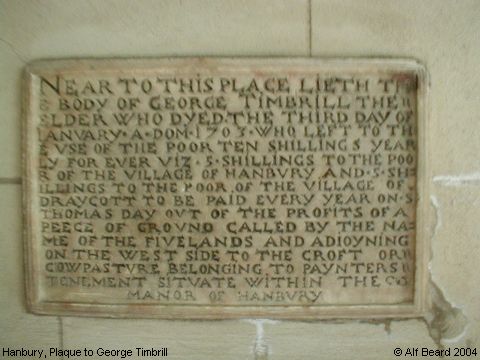 NEAR TO THIS PLACE LIETH TH
E BODY OF GEORGE TIMBRILL THE
ELDER WHO DYED THE THIRD DAY OF
IANVARY · A · DOM · 1703 · WHO LEFT TO TH
E VSE OF THE POOR TEN SHILLINGS YEAR
LY FOR EVER VIZ · 5 · SHILLINGS TO THE POO
R OF THE VILLAGE OF HANBURY AND · 5 · SH
ILLINGS TO THE POOR OF THE VILLAGE OF
DRAYCOTT TO BE PAID EVERY YEAR ON · S
THOMAS DAY OVT OF THE PROFITS OF A
PEECE OF GROVND CALLED BY THE NA
ME OF THE FIVELANDS AND ADIOYNING
ON THE WEST SIDE TO THE CROFT OR
COWPASTVRE BELONGING TO PAYNTERS
TENEMENT SITVATE WITHIN THE
MANOR OF HANBURY
Hanbury, Plaque to George Timbrill
© Alf Beard 2004